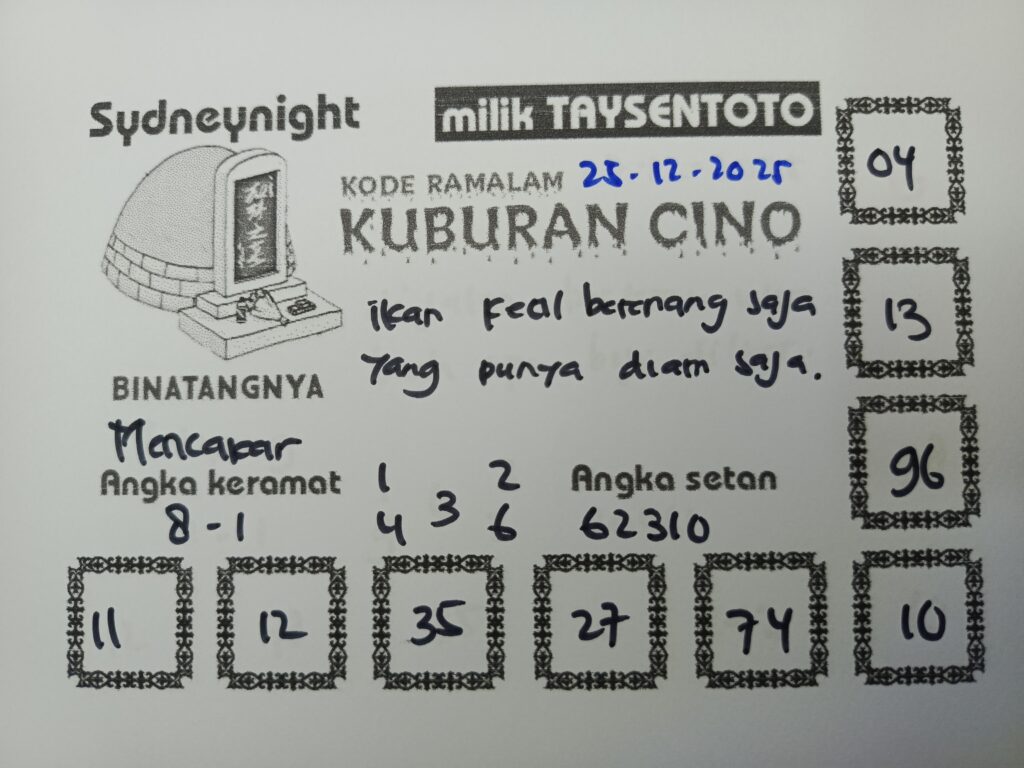 Sydneynight
milik TAYSENTOTO
KODE RAMALAM 25.12.2025
KUBURAN CINO
ikan kecil berenang saja
yang punya diam saja.
BINATANGNYA
Mencakar
Angka keramat
8-1
1 2
3
4 6
Angka setan
62310
04
13
96
11 12 35 27 74 10